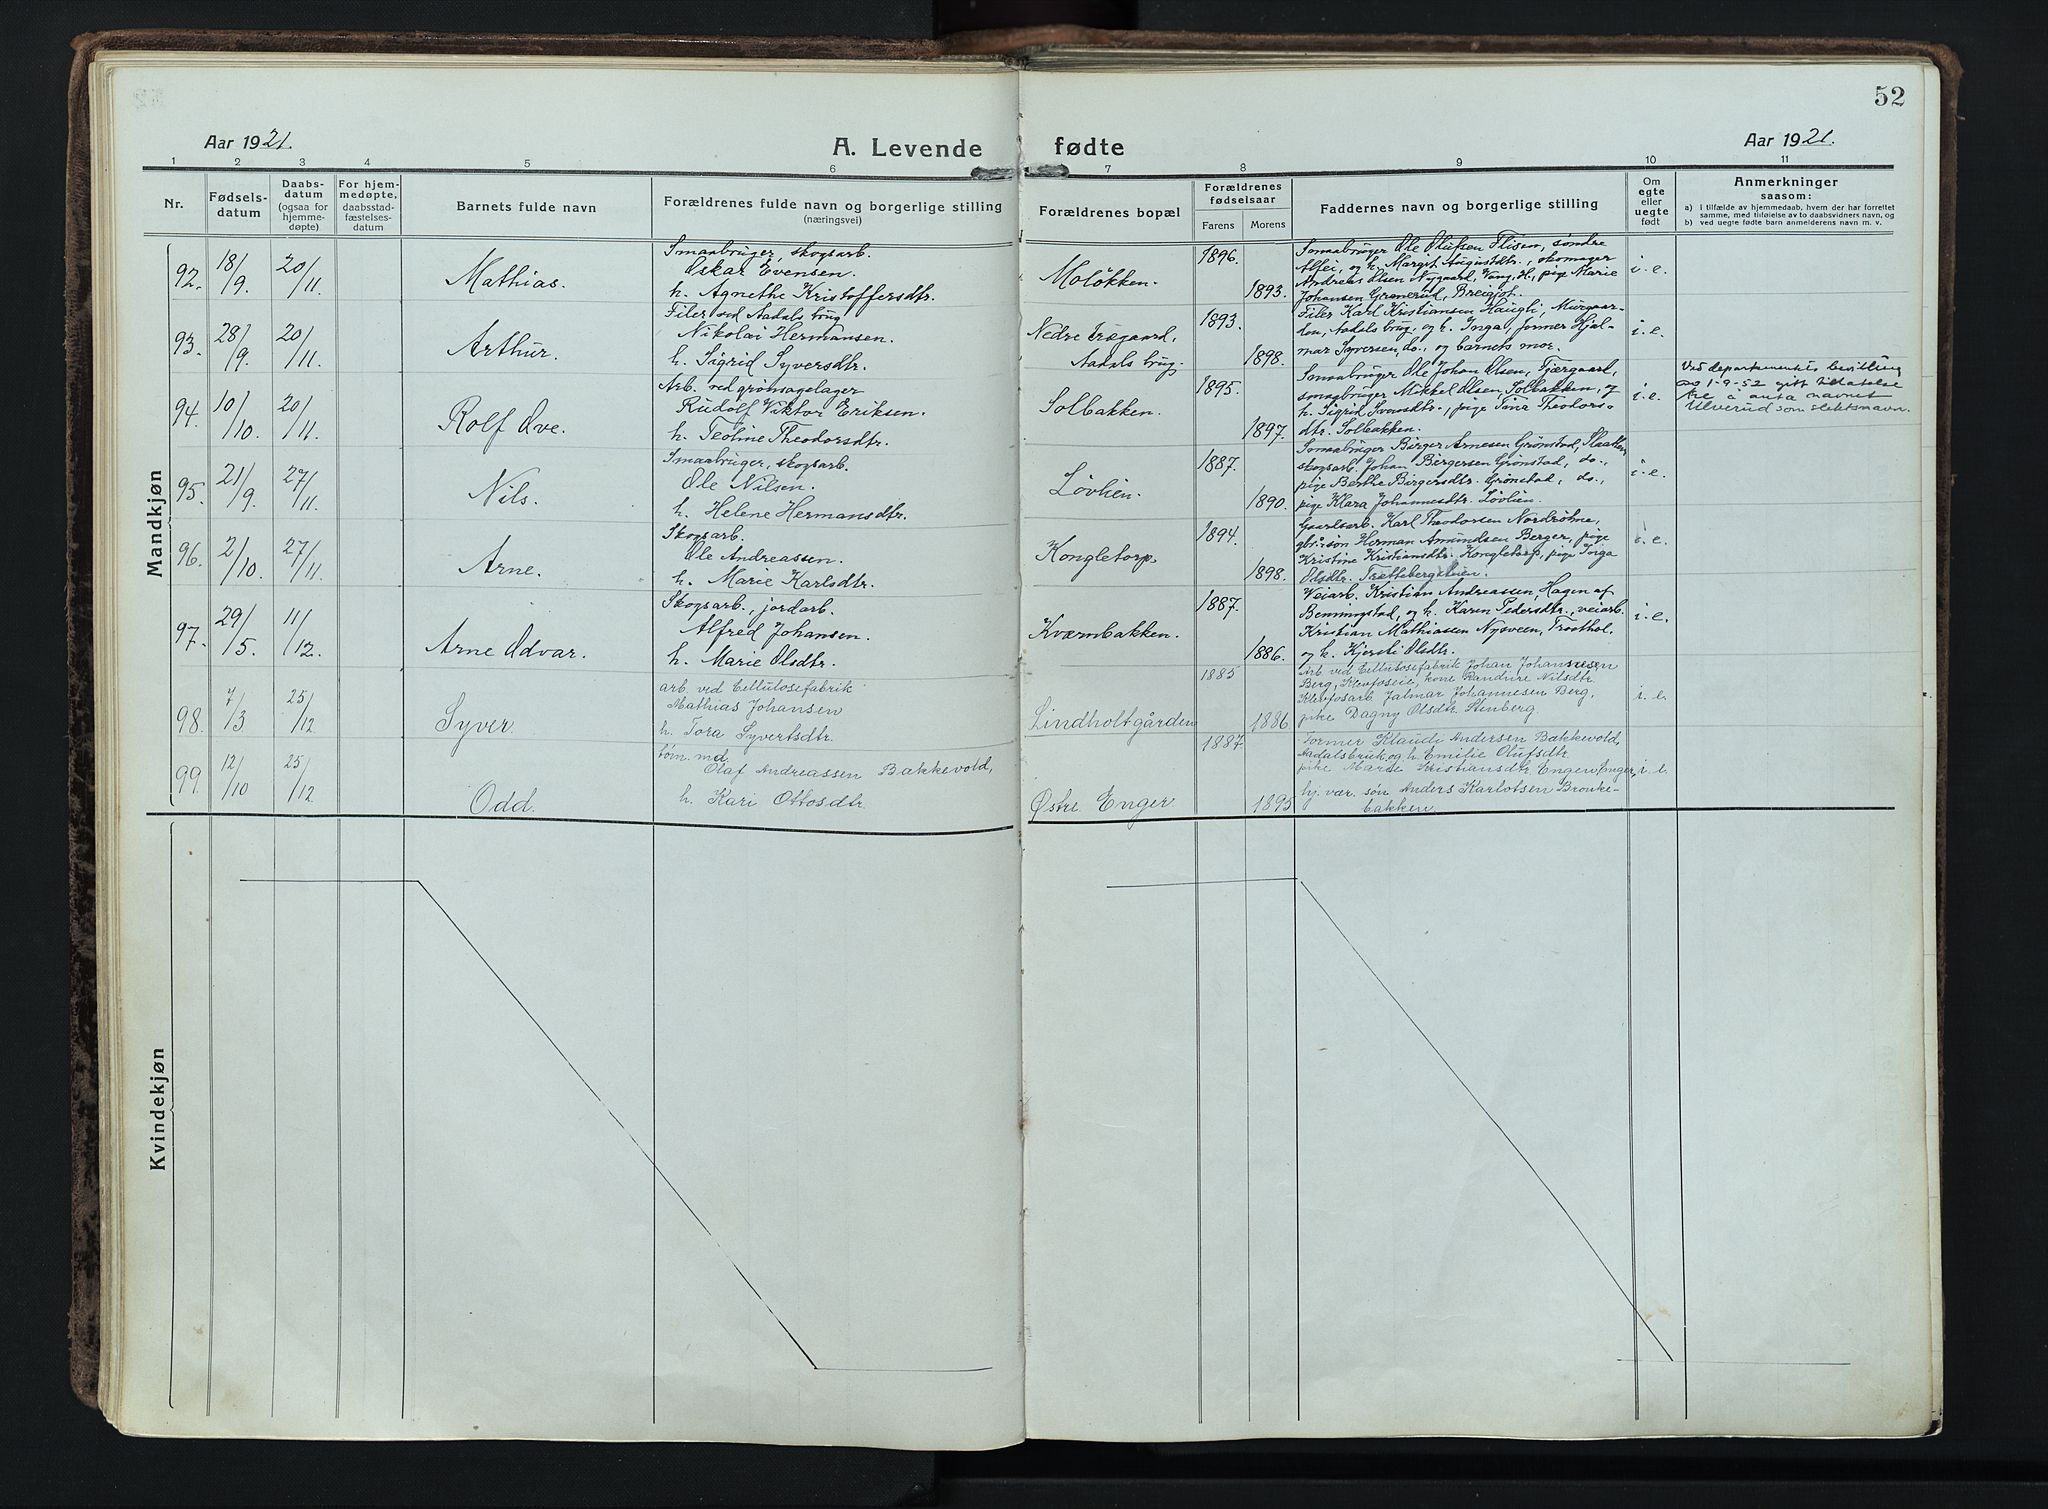 52
Aar 1921.
A. Levende fødte
Aar 1921.
1 2 3 4 5 6 7 8 9 10 11
Nr.
Fødselsdatum
Daabsdatum
(ogsaa for
hjemmedøpte)
For hjemmedøpte,
daabsstadfæstelsesdatum
Barnets fulde navn
Forældrenes fulde navn og borgerlige stilling
(næringsvei)
Forældrenes bopæl
Forældrenes
fødselsaar
Farens Morens
Faddernes navn og borgerlige stilling
Om
egte
eller
uegte
født
Anmerkninger
saasom:
a) I tilfælde av hjemmedaab, hvem der har forrettet
samme, med tilføielse av to daabsvidners navn, og
b) ved uegte fødte barn anmelderens navn m. v.
Mandkjøn
92. 18/9. 20/11. Mathias.
Smaabruger, skogsarb.
Oskar Evensen.
h. Agnethe Kristoffersdtr.
Moløkken.
1896.
1893.
Smaabruger Ole Olufsen Flisen, søndre
Alfei, og h. Margit Augustdtr., skomager
Andreas Olsen Nygaard, Vang, H., pige Marie
Johansen Grønerud, Breigjoh.
i. e.
93. 28/9. 20/11. Arthur.
Filer ved Aadals brug
Nikolai Hermansen.
h. Sigrid Syversdtr.
Nedre
Aadals brug.
1893.
1898.
Filer Karl Kristiansen Haugli, Murgaarden,
Aadals brug, og h. Inga, former Hjalmar
Syversen, do., og barnets mor.
i. e.
94. 10/10. 20/11. Rolf Ove.
Arb. ved grønsagelager
Rudolf Viktor Eriksen.
h. Teoline Theodorsdtr.
Solbakken.
1895.
1897.
Smaabruger Ole Johan Olsen, Fjærgaard,
smaabruger Mikkel Olsen, Solbakken, og
h. Sigrid Svensdtr., pige Sina Theodorsdtr.
Solbakken.
i. e.
Ved departementets bevilling
av 1-9-52 gitt tillatelse
til å anta navnet
Ulverud som slektsnavn.
95. 21/9. 27/11. Nils.
Smaabruger, skogsarb.
Ole Nilsen.
h. Helene Hermansdtr.
Løvlien.
1887.
1890.
Smaabruger Birger Arnesen Grønstad, Slaatten,
skogsarb. Johan Bergersen Grønstad, do.,
pige Berthe Birgersdtr. Grønstad, do.,
pige Klara Johannesdtr. Løvlien.
i. e.
96. 2/10. 27/11. Arne.
Skogsarb.
Ole Andreassen.
h. Marie Karlsdtr.
Kongletorp.
1894.
1898.
Gaardsarb. Karl Theodorsen Nordrøhne,
gbr.søn Herman Amundsen Berger, pige
Kristine Kristiansdtr. Kongletorp, pige Inga
Olsdtr. Trættebergshien.
i. e.
97. 29/5. 11/12. Arne Odvar.
Skogsarb., jordarb.
Alfred Johansen.
h. Marie Olsdtr.
Kværnbakken.
1887.
1886.
Veiarb. Kristian Andreassen, Hagen af
Benningstad, og h. Karen Pedersdtr., veiarb.
Kristian Mathiassen Nysveen, Trosthol,
og h. Kjersti Olsdtr.
i. e.
98. 7/3 25/12 Syver.
arb. ved Cellulosefabrik
Mathias Johansen
h. Tora Syvertsdtr.
Lindholtgården
1885
1886
Arb. ved Cellulosefabrik Johan Johannesen
Berg, Klevfoseie, kone Randine Nilsdtr.
Klevfosarb. Jalmar Johannesen Berg,
pike Dagny Olsdtr. Stenberg
i. e.
99. 12/10 25/12 Odd.
tøm. md.
Olaf Andreassen Bakkevold,
h. Kari Ottosdtr.
Østre Enger
1887.
1895
Former Klaudi Andersen Bækkevold,
Aadalsbruk og h. Emilie Olufsdtr
pike Marie Kristiansdtr. Engen, Enger,
hj. vær. søn Anders Karlotsen Bronkebakken.
i. e.
Kvindekjøn